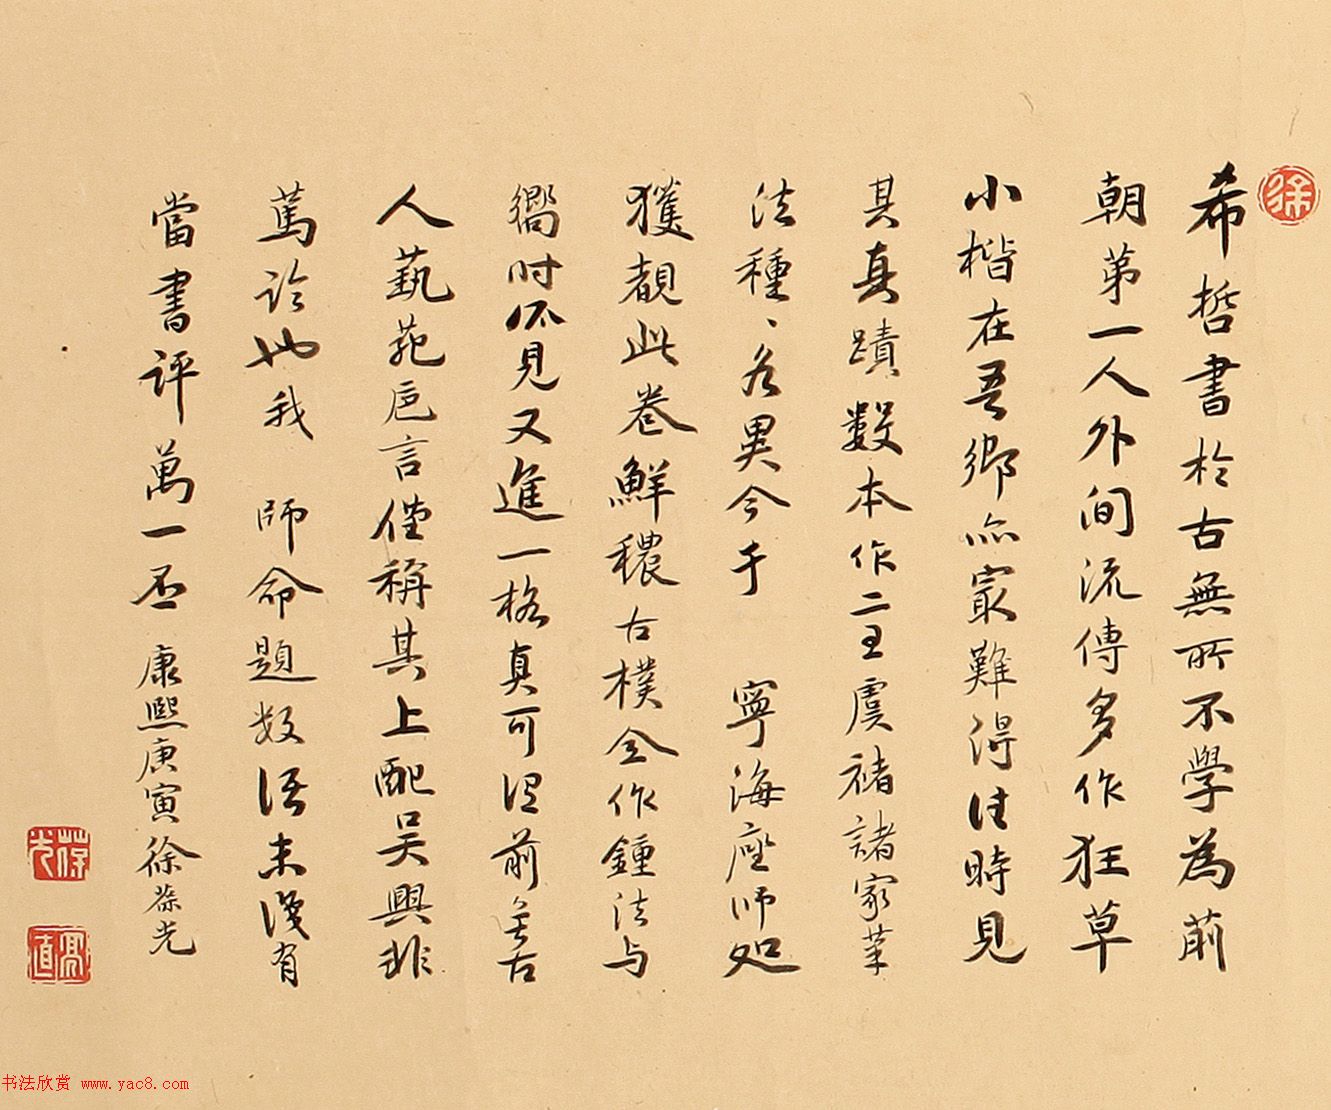 徐
希哲書於古無所不學為前
朝第一人外間流傳多作狂草
小楷在吾鄉亦最難得往時見
其真蹟數本作二王虞褚諸家筆
法種、各異今于 寧海座師処
獲覩此卷鮮穠古樸全作鍾法与
嚮时所見又進一格真可謂前無古
人藝苑卮言僅稱其上配吳興非
篤論也我 師命題數語未識有
當書評萬一否 康熙庚寅徐葆光
葆光
亮直
书法欣赏 www.yac8.com